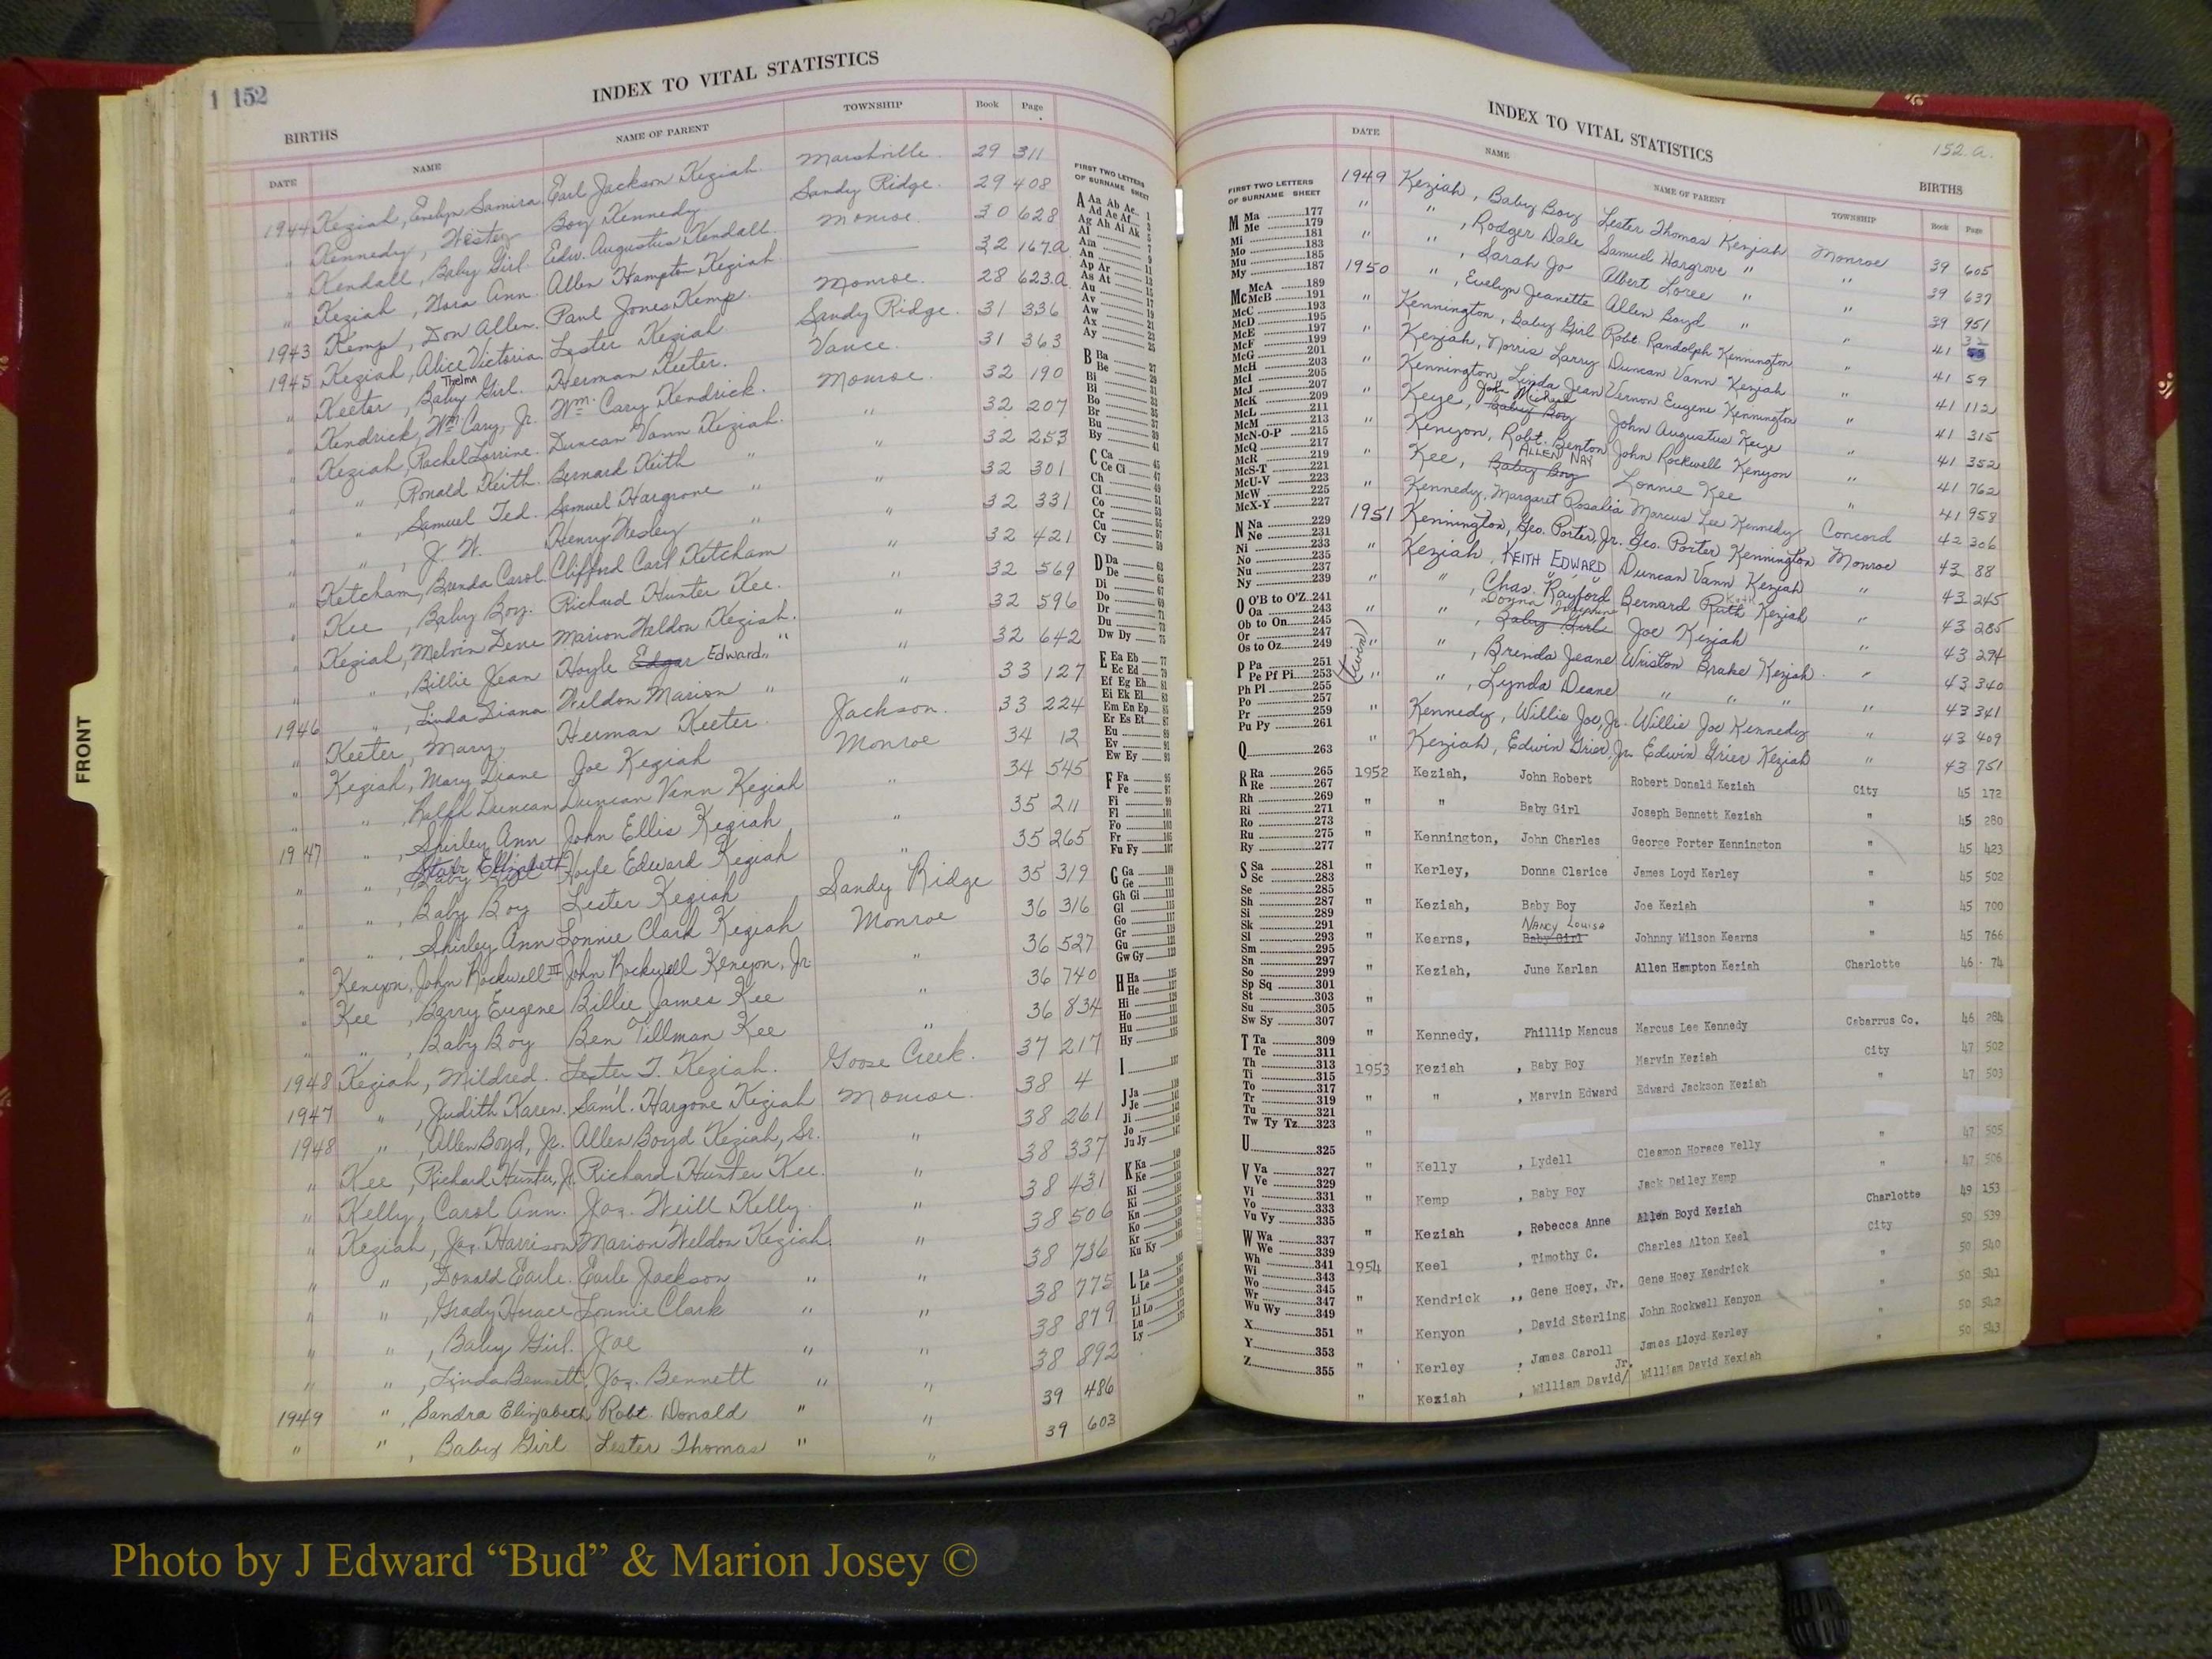 1 152
INDEX TO VITAL STATISTICS
BIRTHS
DATE NAME NAME OF PARENT TOWNSHIP Book Page
1944 Keziah, Evelyn Samira Earl Jackson Keziah Marshville 29 311
" Kennedy, Wesley Boy Kennedy Sandy Ridge 29 408
" Kendall, Baby Girl Edw. Augustus Kendall Monroe 30 628
" Keziah, Nora Ann Allen Hampton Keziah — 32 167a
1943 Kemp, Don Allen Paul Jones Kemp Monroe 28 623a
1945 Keziah, Alice Victoria Lester Keziah Sandy Ridge 31 336
" Keeter, Baby Girl Thelma Herman Keeter Vance 31 363
" Kendrick, Wm. Cary, Jr. Wm. Cary Kendrick Monroe 32 190
" Keziah, Rachel Lorrine Duncan Vann Keziah " 32 207
" " , Ronald Keith Bernard Keith " " 32 253
" " , Samuel Ted Samuel Hargrove " " 32 301
" " , J. W. Henry Wesley " " 32 331
" Ketcham, Brenda Carol Clifford Carl Ketcham " 32 421
" Kee, Baby Boy Richard Hunter Kee " 32 569
" Keziah, Melvin Dene Marion Weldon Keziah " 32 596
" " , Billie Jean Hoyle Edgar Edward " " 32 642
1946 " , Linda Diana Weldon Marion " " 33 127
" Keeter, Mary Herman Keeter Jackson 33 224
" Keziah, Mary Diane Joe Keziah Monroe 34 12
" " , Ralph Duncan Duncan Vann Keziah " 34 545
1947 " , Shirley Ann John Ellis Keziah " 35 211
" " , Starr Elizabeth Baby Girl Hoyle Edward Keziah " 35 265
" " , Baby Boy Lester Keziah Sandy Ridge 35 319
" " , Shirley Ann Lonnie Clark Keziah Monroe 36 316
" Kenyon, John Rockwell III John Rockwell Kenyon, Jr " 36 527
" Kee, Barry Eugene Billie James Kee " 36 740
" " , Baby Boy Ben Tillman Kee " 36 834
1948 Keziah, Mildred Lester T. Keziah Goose Creek 37 217
1947 " , Judith Karen Sam'l. Hargove Keziah Monroe 38 4
1948 " , Allen Boyd, Jr. Allen Boyd Keziah, Sr. " 38 261
" Kee, Richard Hunter, Jr Richard Hunter Kee " 38 337
" Kelly, Carol Ann Jas. Weill Kelly " 38 431
" Keziah, Jas. Harrison Marion Weldon Keziah " 38 506
" " , Donald Earle Earle Jackson " " 38 736
" " , Grady Horace Lonnie Clark " " 38 775
" " , Baby Girl Joe " " 38 879
" " , Linda Bennett Jos. Bennett " " 38 892
1949 " , Sandra Elizabeth Robt. Donald " " 39 486
" " , Baby Girl Lester Thomas " " 39 603
FRONT
FIRST TWO LETTERS
OF SURNAME SHEET
A Aa Ab Ac 1
Ad Ae Af 3
Ag Ah Ai Ak 5
Al 7
Am 9
An 11
Ap Ar 13
As At 15
Au 17
Av 19
Aw 21
Ax 23
Ay 25
B Ba 27
Be
Bi
Bl
Bo
Br
Bu
By 41
C Ca 45
Ce Ci
Ch 47
Cl
Co
Cr
Cu
Cy
D Da 63
De 65
Di
Do
Dr
Du
Dw Dy 75
E Ea Eb 77
Ec Ed 79
Ef Eg Eh 81
Ei Ek El 83
Em En Ep 85
Er Es Et 87
Eu 89
Ev 91
Ew Ey 93
F Fa 95
Fe 97
Fi 99
Fl 101
Fo 103
Fr 105
Fu Fy 107
G Ga 109
Ge 111
Gh Gi 113
Gl 115
Go 117
Gr 119
Gu
Gw Gy
H Ha
He
Hi
Ho
Hu
Hy
I
J Ja
Je
Ji
Jo
Ju Jy
K Ka
Ke
Ki
Kl
Kn
Ko
Kr
Ku Ky
L La
Le
Li
Ll Lo
Lu
Ly
INDEX TO VITAL STATISTICS
152 a.
BIRTHS
DATE NAME NAME OF PARENT TOWNSHIP Book Page
1949 Keziah, Baby Boy Lester Thomas Keziah Monroe 39 605
" " , Rodger Dale Samuel Hargrove " " 39 637
" " , Sarah Jo Albert Loree " " 39 951
1950 " , Evelyn Jeanette Allen Boyd " " 41 32
" Kennington, Baby Girl Robt. Randolph Kennington " 41 59
" Keziah, Norris Larry Duncan Vann Keziah " 41 112
" Kennington, Linda Jean Vernon Eugene Kennington " 41 315
" Keye, John Michael Baby Boy John Augustus Keye " 41 352
" Kenyon, Robt. Benton John Rockwell Kenyon " 41 762
" Kee, ALLEN NAY Baby Boy Lonnie Kee " 41 958
" Kennedy, Margaret Rosalia Marcus Lee Kennedy Concord 42 306
1951 Kennington, Geo. Porter, Jr. Geo. Porter Kennington Monroe 43 88
" Keziah, KEITH EDWARD Duncan Vann Keziah " 43 245
" " , Chas. Rayford Bernard Ruth Keith Keziah " 43 285
" " , Donna Josephine Baby Girl Joe Keziah " 43 294
(twin) " " , Brenda Jeane Wriston Brake Keziah " 43 340
" " , Lynda Deane " " " " 43 341
" Kennedy, Willie Joe, Jr. Willie Joe Kennedy " 43 409
" Keziah, Edwin Grier, Jr. Edwin Grier Keziah " 43 751
1952 Keziah, John Robert Robert Donald Keziah City 45 172
" " Baby Girl Joseph Bennett Keziah " 45 280
" Kennington, John Charles George Porter Kennington " 45 423
" Kerley, Donna Clarice James Loyd Kerley " 45 502
" Keziah, Baby Boy Joe Keziah " 45 700
" Kearns, NANCY LOUISA Baby Girl Johnny Wilson Kearns " 45 766
" Keziah, June Karlan Allen Hampton Keziah Charlotte 46 74
"
" Kennedy, Phillip Mancus Marcus Lee Kennedy Cabarrus Co. 46 284
1953 Keziah , Baby Boy Marvin Keziah City 47 502
" " , Marvin Edward Edward Jackson Keziah " 47 503
"
" Kelly , Lydell Cleamon Horace Kelly " 47 505
" Kemp , Baby Boy Jack Dailey Kemp " 47 506
" Keziah , Rebecca Anne Allen Boyd Keziah Charlotte 49 153
1954 Keel , Timothy C. Charles Alton Keel City 50 539
" Kendrick ,, Gene Hoey, Jr. Gene Hoey Kendrick " 50 540
" Kenyon , David Sterling John Rockwell Kenyon " 50 541
" Kerley , James Caroll James Lloyd Kerley " 50 542
" Keziah , William David/ Jr. William David Kexiah " 50 543
FIRST TWO LETTERS
OF SURNAME SHEET
M Ma 177
Me 179
Mi 181
Mo 183
Mu 185
My 187
Mc McA 189
McB 191
McC 193
McD 195
McE 197
McF 199
McG 201
McH 203
McI 205
McJ 207
McK 209
McL 211
McM 213
McN-O-P 215
McQ 217
McR 219
McS-T 221
McU-V 223
McW 225
McX-Y 227
N Na 229
Ne 231
Ni 233
No 235
Nu 237
Ny 239
O O'B to O'Z 241
Oa 243
Ob to On 245
Or 247
Os to Oz 249
P Pa 251
Pe Pf Pi 253
Ph Pl 255
Po 257
Pr 259
Pu Py 261
Q 263
R Ra 265
Re 267
Rh 269
Ri 271
Ro 273
Ru 275
Ry 277
S Sa 281
Sc 283
Se 285
Sh 287
Si 289
Sk 291
Sl 293
Sm 295
Sn 297
So 299
Sp Sq 301
St 303
Su 305
Sw Sy 307
T Ta 309
Te 311
Th 313
Ti 315
To 317
Tr 319
Tu 321
Tw Ty Tz 323
U 325
V Va 327
Ve 329
Vi 331
Vo 333
Vu Vy 335
W Wa 337
We 339
Wh 341
Wi 343
Wo 345
Wr 347
Wu Wy 349
X 351
Y 353
Z 355
Photo by J Edward “Bud” & Marion Josey ©